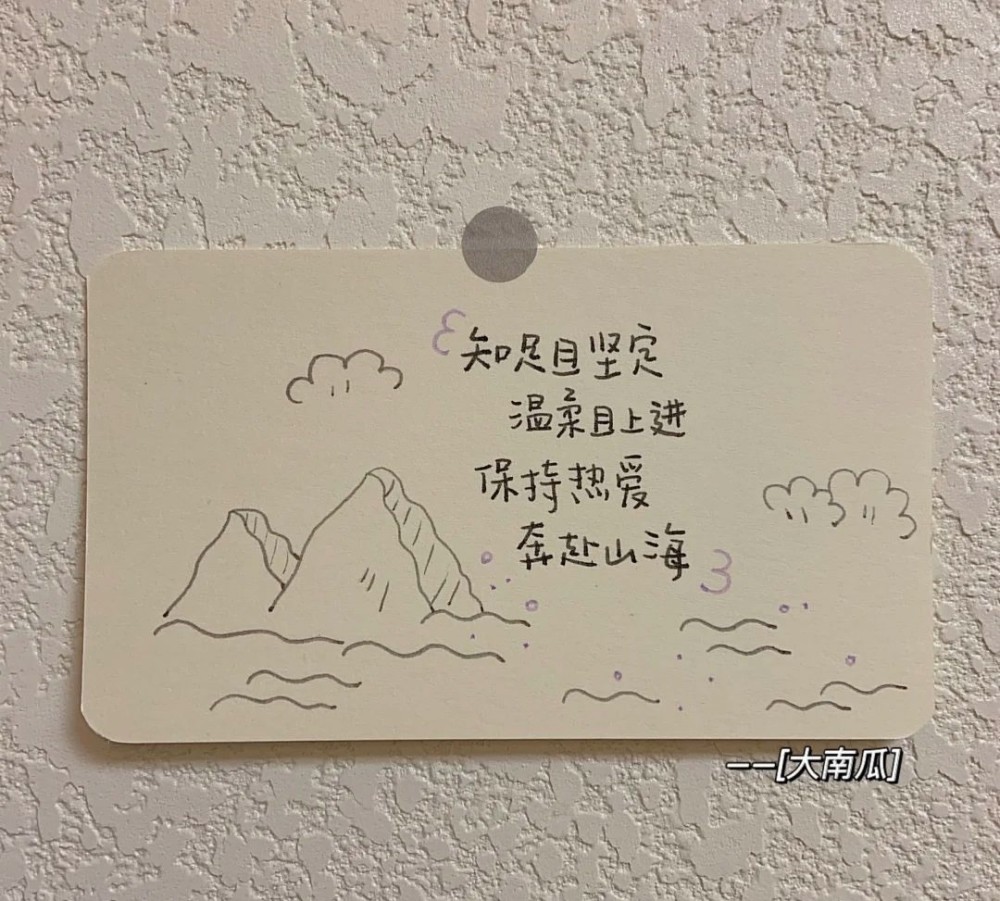 知足且坚定
温柔且上进
保持热爱
奔赴山海
——[大南瓜]